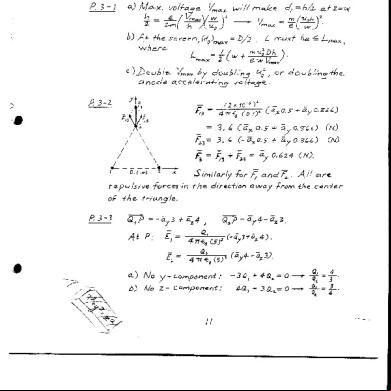 P. 3-1 a) Max. voltage Vmax will make d₁ = h/2 at z = w
h/2 = e/2m (Vmax/h)(w/u₀)² → Vmax = m/e (u₀h/w)².
b) At the screen, (d₂)max = D/2. L must be ≤ Lmax,
where
Lmax = 1/2 (w + m u₀² D h / e w Vmax)
c) Double Vmax by doubling u₀², or doubling the
anode accelerating voltage.
P. 3-2
F̄₁₃ = (2×10⁻⁶)² / 4πε₀(0.1)² (ā_x 0.5 + ā_y 0.866)
= 3.6 (ā_x 0.5 + ā_y 0.866) (N)
F̄₂₃ = 3.6 (-ā_x 0.5 + ā_y 0.866) (N)
F̄₃ = F̄₁₃ + F̄₂₃ = ā_y 0.624 (N).
Similarly for F̄₁ and F̄₂. All are
repulsive forces in the direction away from the center
of the triangle.
P. 3-3 Q₁P = -ā_y 3 + ā_z 4, Q₂P = ā_y 4 - ā_z 3.
At P: Ē₁ = Q₁ / 4πε₀(5)³ (-ā_y 3 + ā_z 4).
Ē₂ = Q₂ / 4πε₀(5)³ (ā_y 4 - ā_z 3).
a) No y-component: -3Q₁ + 4Q₂ = 0 → Q₁/Q₂ = 4/3.
b) No z-component: 4Q₁ - 3Q₂ = 0 → Q₁/Q₂ = 3/4.
11